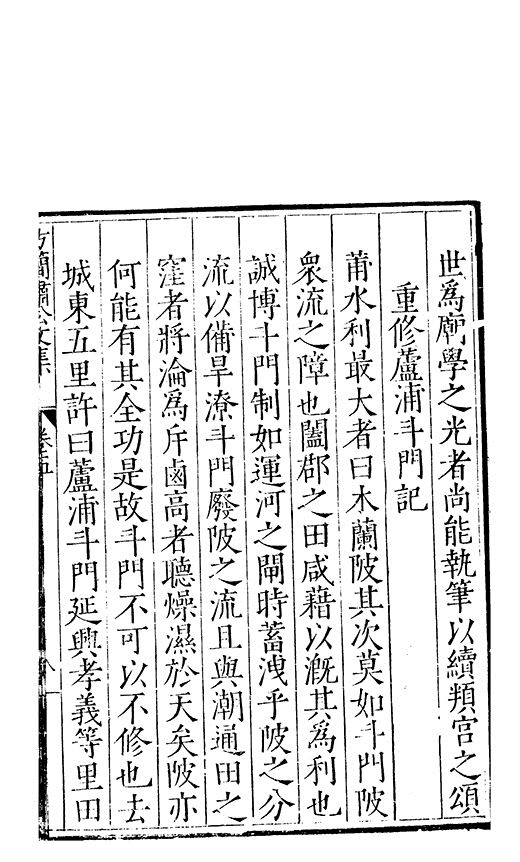 世爲廟學之光者尚能執筆以續頖宮之頌
重修蘆浦斗門記
莆水利最大者曰木蘭陂其次莫如斗門陂
衆流之障也闔郡之田咸藉以漑其爲利也
誠博斗門制如運河之閘時蓄洩乎陂之分
流以備旱潦斗門廢陂之流且與潮通田之
窪者將淪爲斥鹵高者聽燥濕於天矣陂亦
何能有其全功是故斗門不可以不修也去
城東五里許曰蘆浦斗門延興孝義等里田
方簡肅公文集 卷五 八